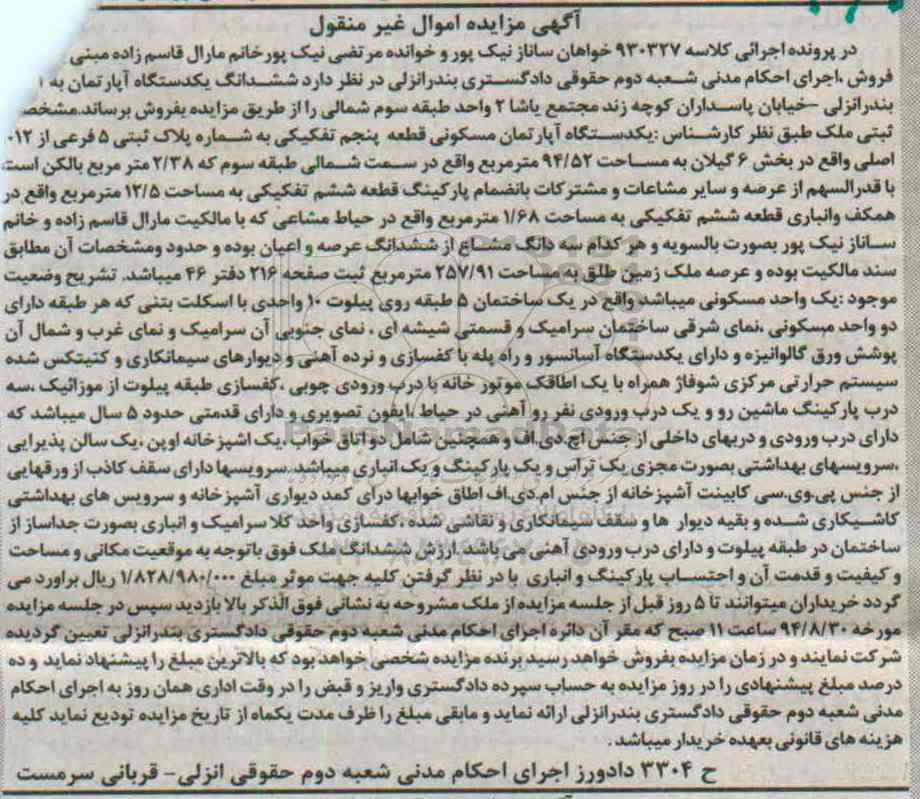 آگهی مزایده اموال غیر منقول
در پرونده اجرائی کلاسه ۹۳۰۳۲۷ خواهان ساناز نیک پور و خوانده مرتضی نیک پور خانم مارال قاسم زاده مبنی
فروش ،اجرای احکام مدنی شعبه دوم حقوقی دادگستری بندرانزلی در نظر دارد ششدانگ یکدستگاه آپارتمان به
بندرانزلی –خیابان پاسداران کوچه زند مجتمع یاشا ۲ واحد طبقه سوم شمالی را از طریق مزایده بفروش برساند.مشخصات
ثبتی ملک طبق نظر کارشناس :یکدستگاه آپارتمان مسکونی قطعه پنجم تفکیکی به شماره پلاک ثبتی ۵ فرعی از ۰۱۲
اصلی واقع در بخش ۶ گیلان به مساحت ۹۴/۵۲ مترمربع واقع در سمت شمالی طبقه سوم که ۲/۳۸ متر مربع بالکن است
با قدرالسهم از عرصه و سایر مشاعات و مشترکات بانضمام پارکینگ قطعه ششم تفکیکی به مساحت ۱۲/۵ مترمربع واقع در
همکف وانباری قطعه ششم تفکیکی به مساحت ۱/۶۸ مترمربع واقع در حیاط مشاعی که با مالکیت مارال قاسم زاده و خانم
ساناز نیک پور بصورت بالسویه و هر کدام سه دانگ مشاع از ششدانگ عرصه و اعیان بوده و حدود ومشخصات آن مطابق
سند مالکیت بوده و عرصه ملک زمین طلق به مساحت ۲۵۷/۹۱ مترمربع ثبت صفحه ۲۱۶ دفتر ۴۶ میباشد. تشریح وضعیت
موجود :یک واحد مسکونی میباشد واقع در یک ساختمان ۵ طبقه روی پیلوت ۱۰ واحدی با اسکلت بتنی که هر طبقه دارای
دو واحد مسکونی ،نمای شرقی ساختمان سرامیک و قسمتی شیشه ای ، نمای جنوبی آن سرامیک و نمای غرب و شمال آن
پوشش ورق گالوانیزه و دارای یکدستگاه آسانسور و راه پله با کفسازی و نرده آهنی و دیوارهای سیمانکاری و کنیتکس شده
سیستم حرارتی مرکزی شوفاژ همراه با یک اطاقک موتور خانه با درب ورودی چوبی ،کفسازی طبقه پیلوت از موزائیک ،سه
درب پارکینگ ماشین رو و یک درب ورودی نفر رو آهنی در حیاط ،ایفون تصویری و دارای قدمتی حدود ۵ سال میباشد که
دارای درب ورودی و دربهای داخلی از جنس اچ.دی.اف و همچنین شامل دو اتاق خواب ،یک اشپزخانه اوپن ،یک سالن پذیرایی
،سرویسهای بهداشتی بصورت مجزی یک تراس و یک پارکینگ و یک انباری میباشد.سرویسها دارای سقف کاذب از ورقهایی
از جنس پی.وی.سی کابینت آشپزخانه از جنس ام.دی.اف اطاق خوابها درای کمد دیواری آشپزخانه و سرویس های بهداشتی
کاشیکاری شده و بقیه دیوار ها و سقف سیمانکاری و نقاشی شده ،کفسازی واحد کلا سرامیک و انباری بصورت جداساز از
ساختمان در طبقه پیلوت و دارای درب ورودی آهنی می باشد .ارزش ششدانگ ملک فوق باتوجه به موقعیت مکانی و مساحت
و کیفیت و قدمت آن و احتساب پارکینگ و انباری با در نظر گرفتن کلیه جهت موثر مبلغ ۱/۸۲۸/۹۸۰/۰۰۰ ریال براورد می
گردد خریداران میتوانند تا ۵ روز قبل از جلسه مزایده از ملک مشروحه به نشانی فوق الذکر بالا بازدید سپس در جلسه مزایده
مورخه ۹۴/۸/۳۰ ساعت ۱۱ صبح که مقر آن دائره اجرای احکام مدنی شعبه دوم حقوقی دادگستری بندرانزلی تعیین گردیده
شرکت نمایند و در زمان مزایده بفروش خواهد رسید برنده مزایده شخصی خواهد بود که بالاترین مبلغ را پیشنهاد نماید و ده
درصد مبلغ پیشنهادی را در روز مزایده به حساب سپرده دادگستری واریز و قبض را در وقت اداری همان روز به اجرای احکام
مدنی شعبه دوم حقوقی دادگستری بندرانزلی ارائه نماید و مابقی مبلغ را ظرف مدت یکماه از تاریخ مزایده تودیع نماید کلیه
هزینه های قانونی بعهده خریدار میباشد .
ح ۳۳۰۴ دادورز اجرای احکام مدنی شعبه دوم حقوقی انزلی– قربانی سرمست